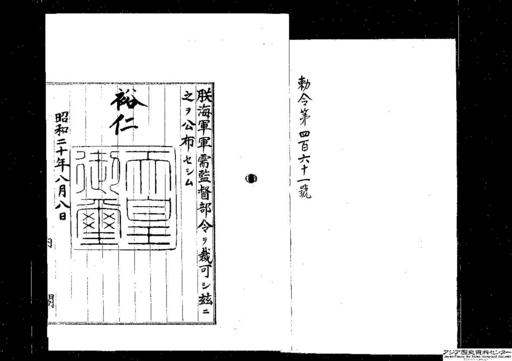 勅令第四百六十一號
朕海軍軍需監督部令ヲ裁可シ玆ニ
之ヲ公布セシム
裕仁
天皇
御璽
昭和二十年八月八日
内閣
アジア歴史資料センター